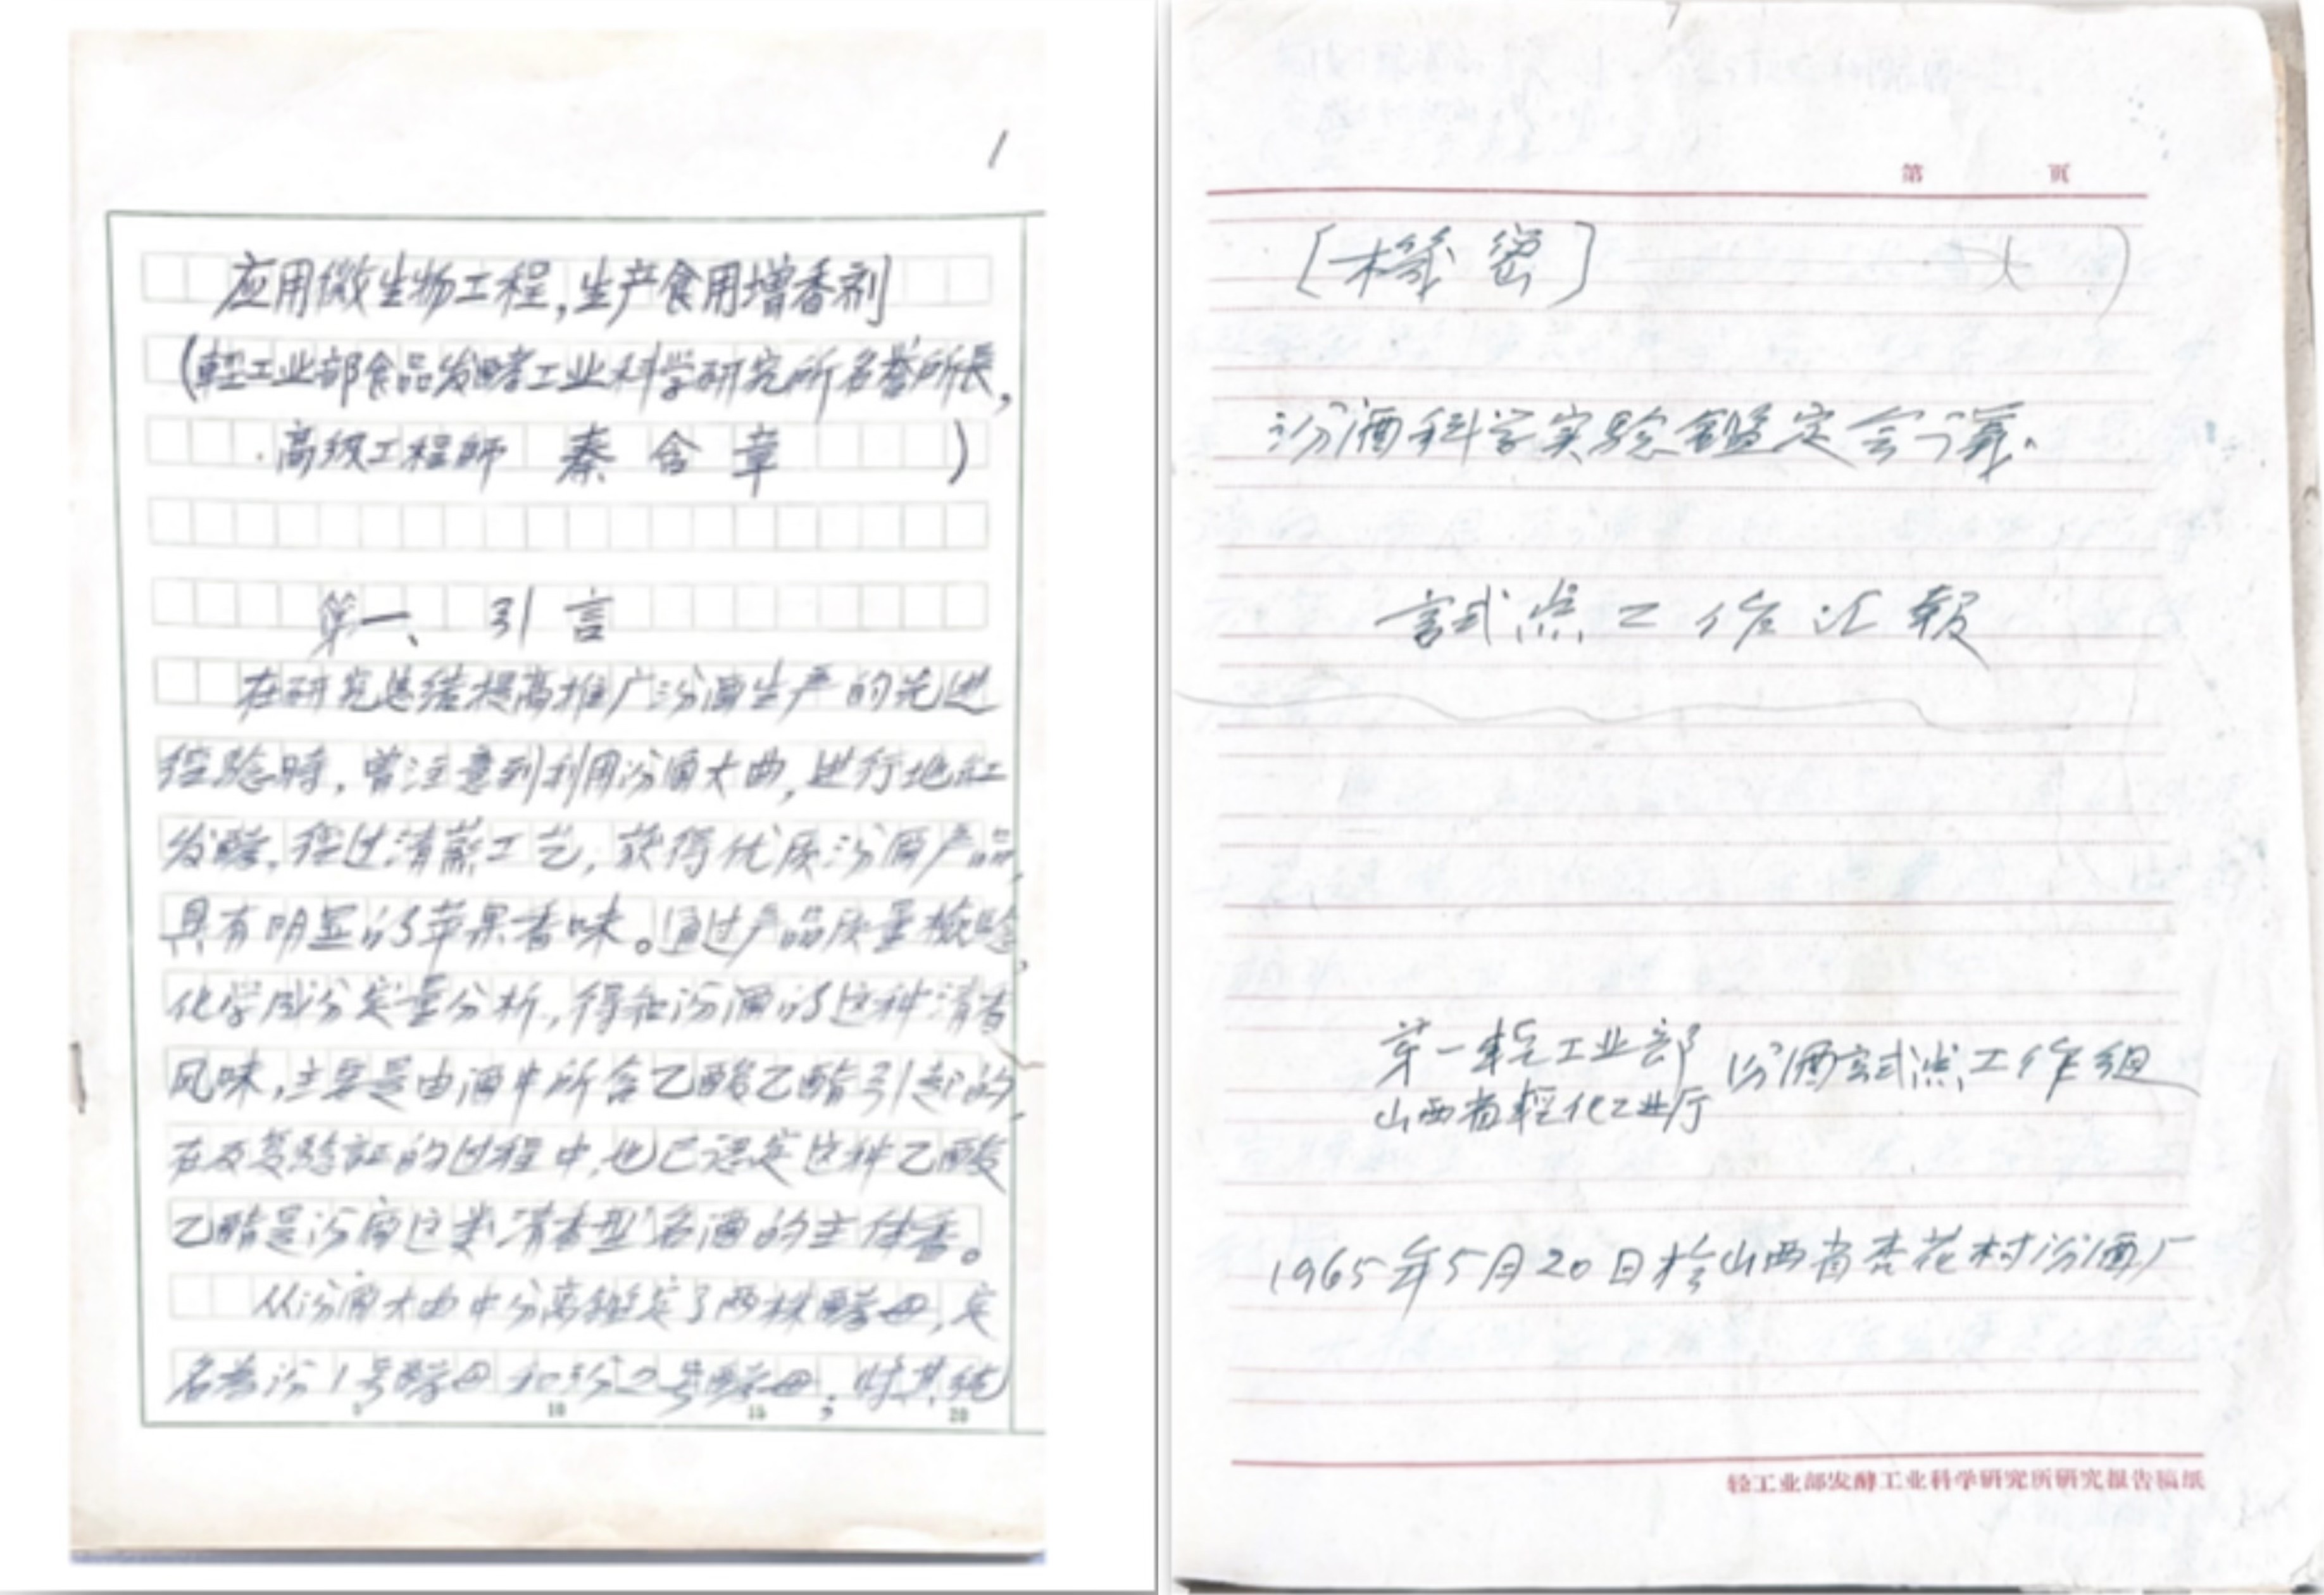 1
应用微生物工程,生产食用增香剂
(輕工业部食品发酵工业科学研究所名誉所长,
高级工程师 秦含章)
第一、引言
在研究总结提高推广汾酒生产的先进
经验時,曾注意到利用汾酒大曲,进行地缸
发酵,经过清蒸工艺,获得优质汾酒产品,
具有明显的苹果香味。通过产品质量检验,
化学成分定量分析,得知汾酒的这种清香
风味,主要是由酒中所含乙酸乙酯引起的,
在反复验証的过程中,也已認定这种乙酸
乙酯是汾酒这类“清香型”名酒的主体香。
从汾酒大曲中分离鉴定了两株酵母,定
名为汾1号酵母和汾2号酵母;将其纯
5 10 15 20
第 页
[機密]
汾酒科学实验鑑定会议.
試点工作汇報
第一輕工业部
山西省輕化工业厅
汾酒試点工作组
1965年5月20日於山西省杏花村汾酒厂
轻工业部发酵工业科学研究所研究报告稿纸